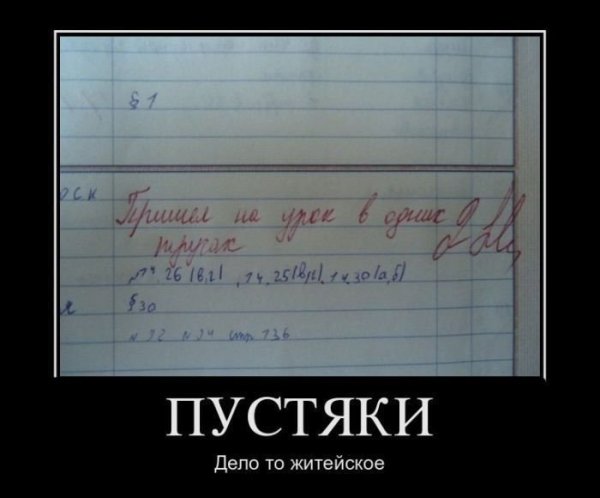 § 1
оск
Пришел на урок в одних 2
трусах
№ 14.26 (в,г), 14.25(в,г), 14.30(а,б)
я
§ 30
№ 92 № 94 стр 136
ПУСТЯКИ
Дело то житейское